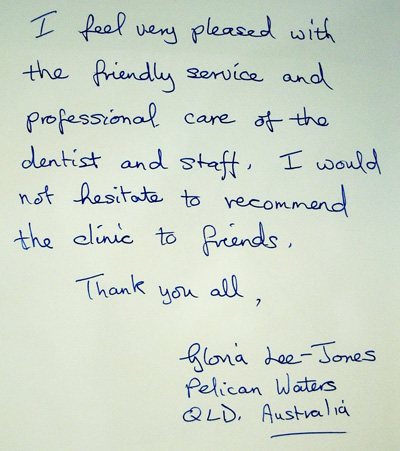 I feel very pleased with
the friendly service and
professional care of the
dentist and staff. I would
not hesitate to recommend
the clinic to friends.
Thank you all,
Gloria Lee-Jones
Pelican Waters
QLD. Australia